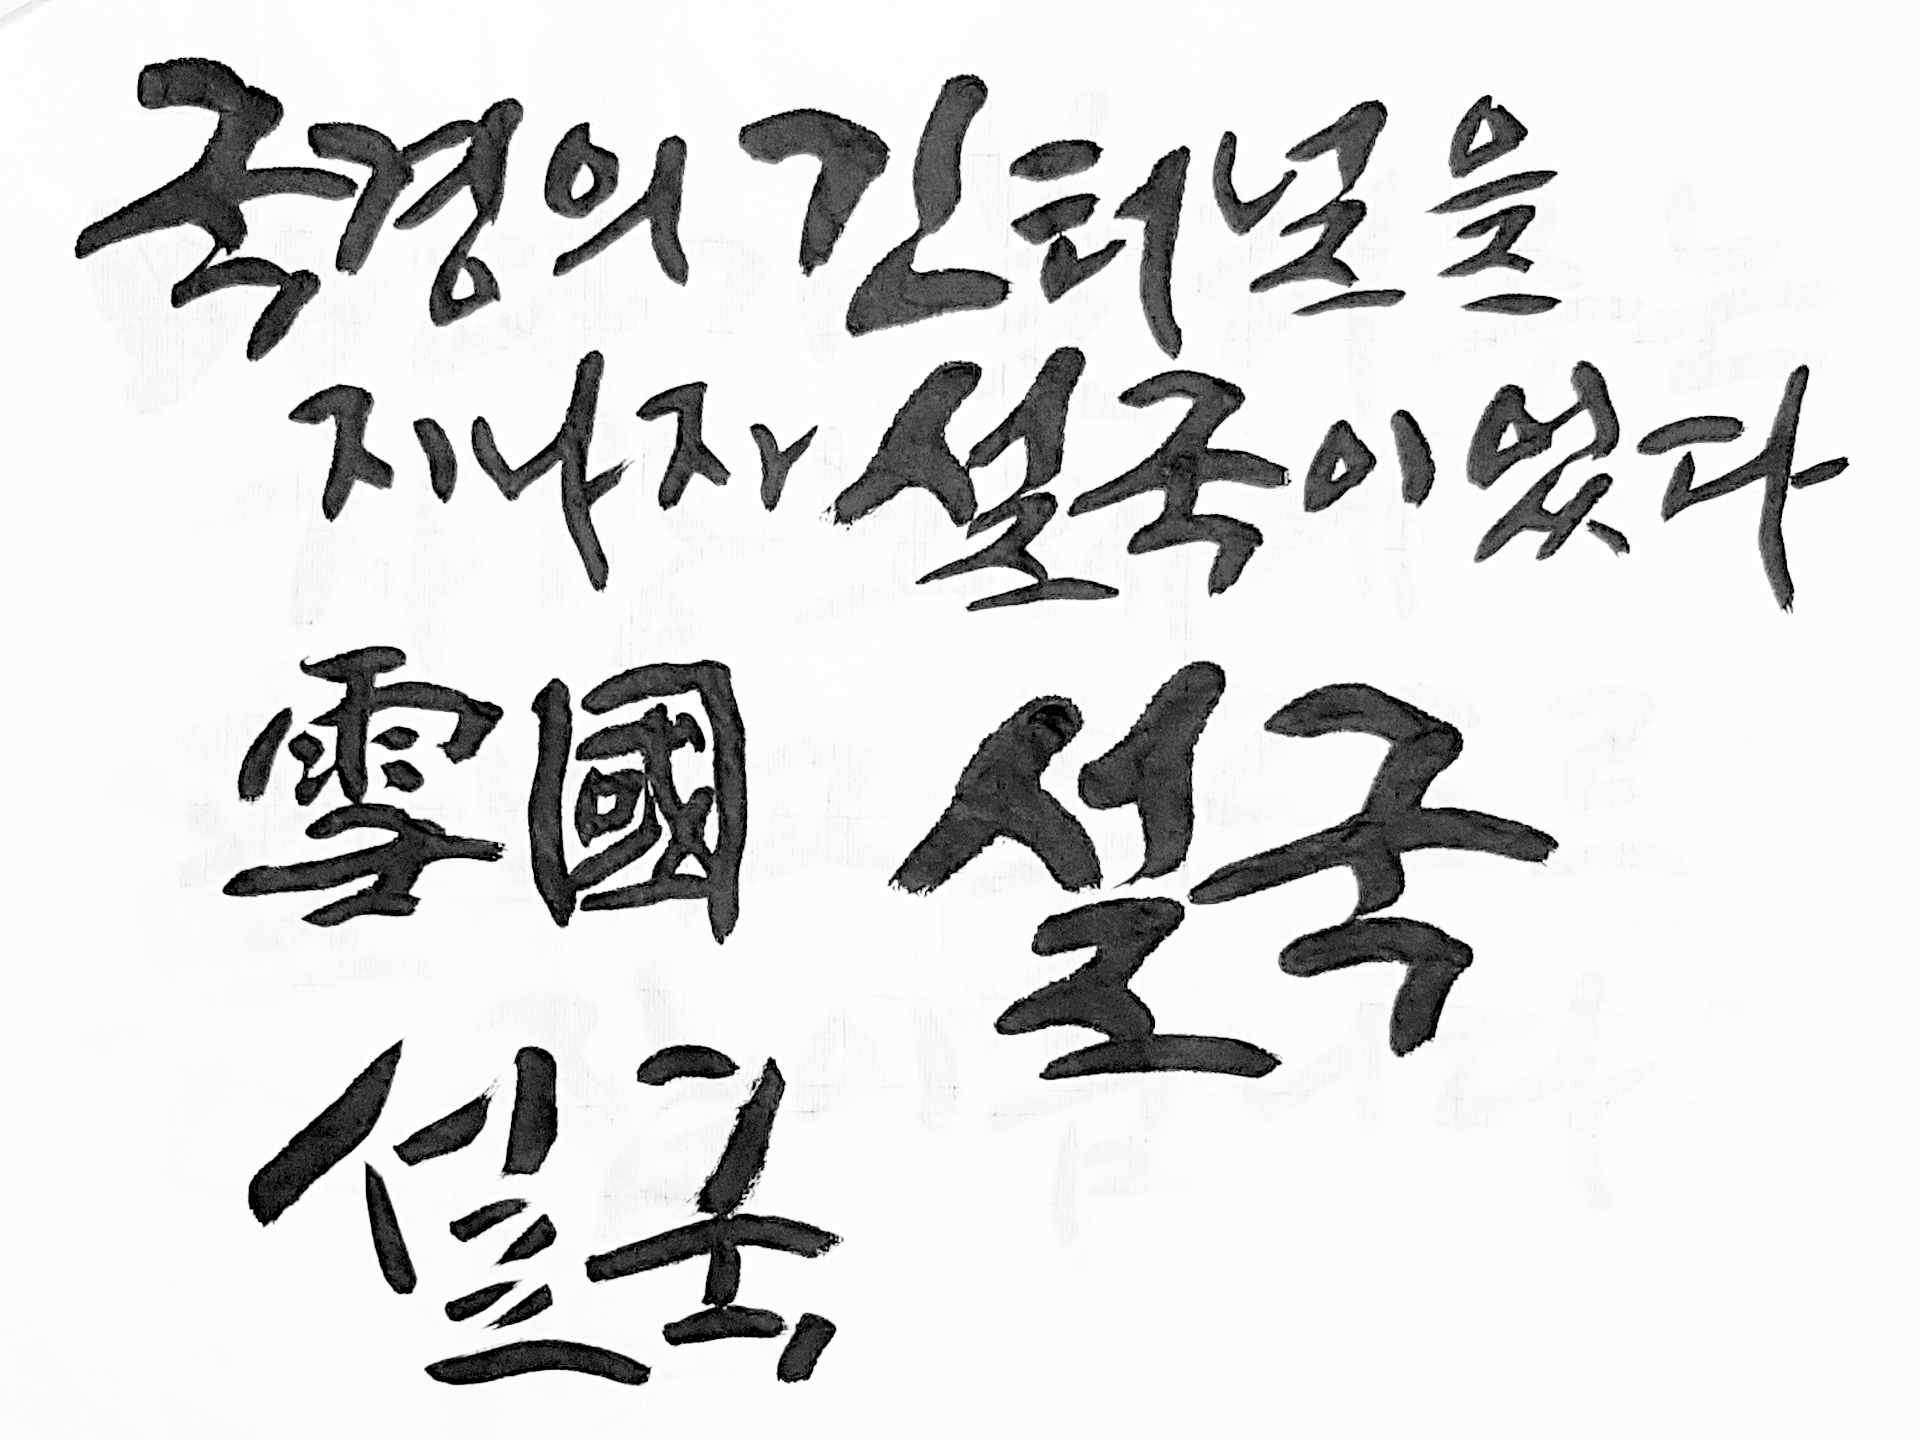 국경의 긴 터널을
지나자 설국이었다
雪國 설국
설국